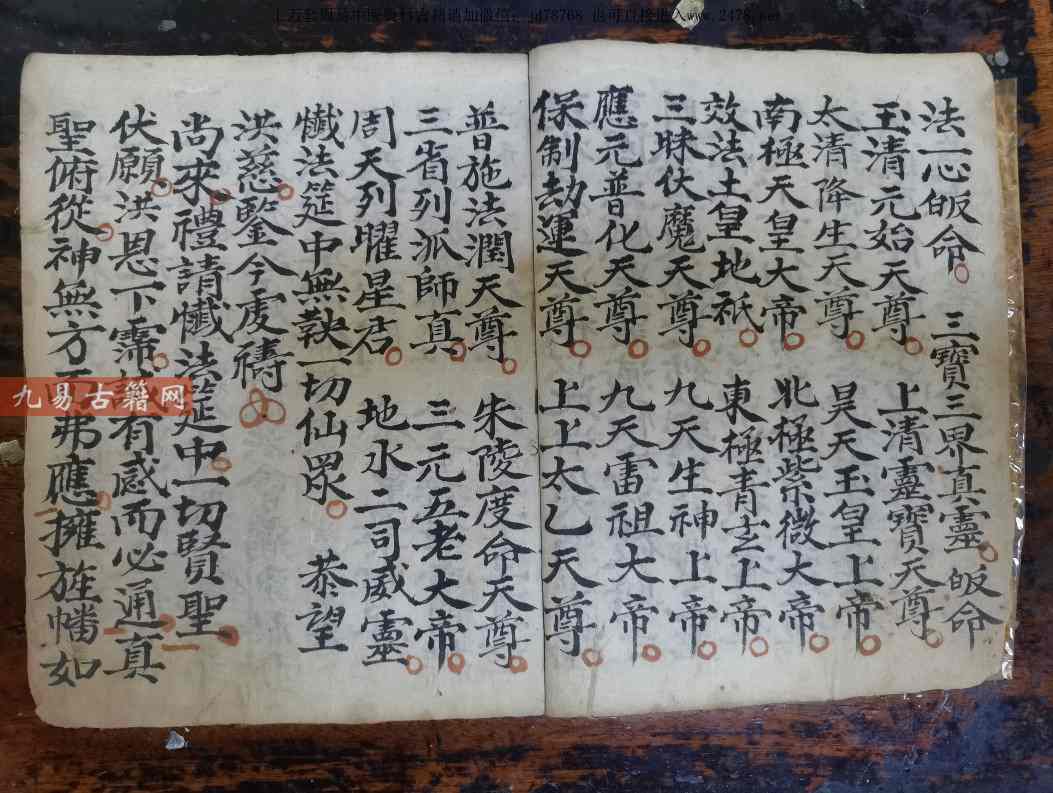 上万套周易中医资料古籍请加微信：jd78768 也可直接进入www.2478.net
法一心皈命 三寶三界真靈 皈命
玉清元始天尊 上清靈寶天尊
太清降生天尊 昊天玉皇上帝
南極天皇大帝 北極紫微大帝
效法土皇地祇 東極青玄上帝
三昧伏魔天尊 九天生神上帝
應元普化天尊 九天雷祖大帝
保制劫運天尊 上上太乙天尊
普施法潤天尊 朱陵度命天尊
三省列派師真 三元五老大帝
周天列曜星君 地水二司威靈
懺法筵中無鞅一切仙眾 恭望
洪慈鑒今虔禱
尚來禮請懺法筵中一切賢聖
伏願洪恩下霈 有感而必通真
聖俯從神無方 弗應擁旌幡如
九易古籍网